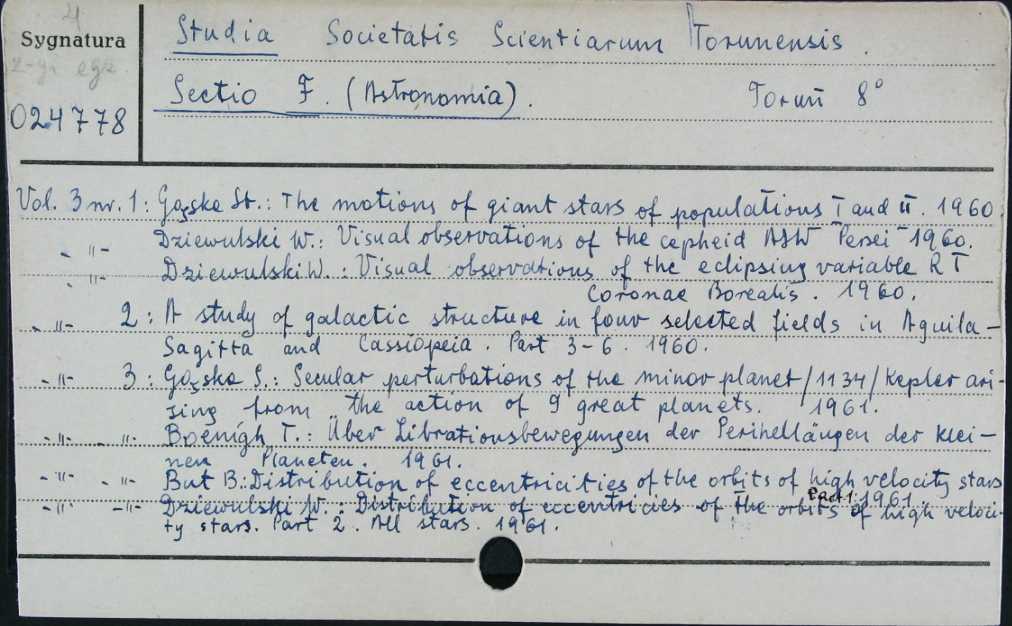 4
Sygnatura
2-gi egz.
024778
Studia Societatis Scientiarum Torunensis.
Sectio F. (Astronomia). Toruń 8°
Vol. 3 nr. 1: Gąska St.: The motions of giant stars of populations I and II. 1960
„ -"- Dziewulski W.: Visual observations of the cepheid AW Persei 1960.
„ -"- Dziewulski W.: Visual observations of the eclipsing variable RT
Coronae Borealis. 1960.
„ -"- 2: A study of galactic structure in four selected fields in Aquila-
Sagitta and Cassiopeia. Part 3-6. 1960.
-"- 3: Gąska S.: Secular perturbations of the minor planet /1134/ Kepler ari-
sing from the action of 9 great planets. 1961.
-"- -"- Boenigh T.: Über Librationsbewegungen der Perihellängen der klei-
nen Planeten. 1961.
-"- -"- But B.: Distribution of eccentricities of the orbits of high velocity stars
Part 1. 1961
-"- -"- Dziewulski W.: Distribution of eccentricies of the orbits of high veloci-
ty stars. Part 2. All stars. 1961.